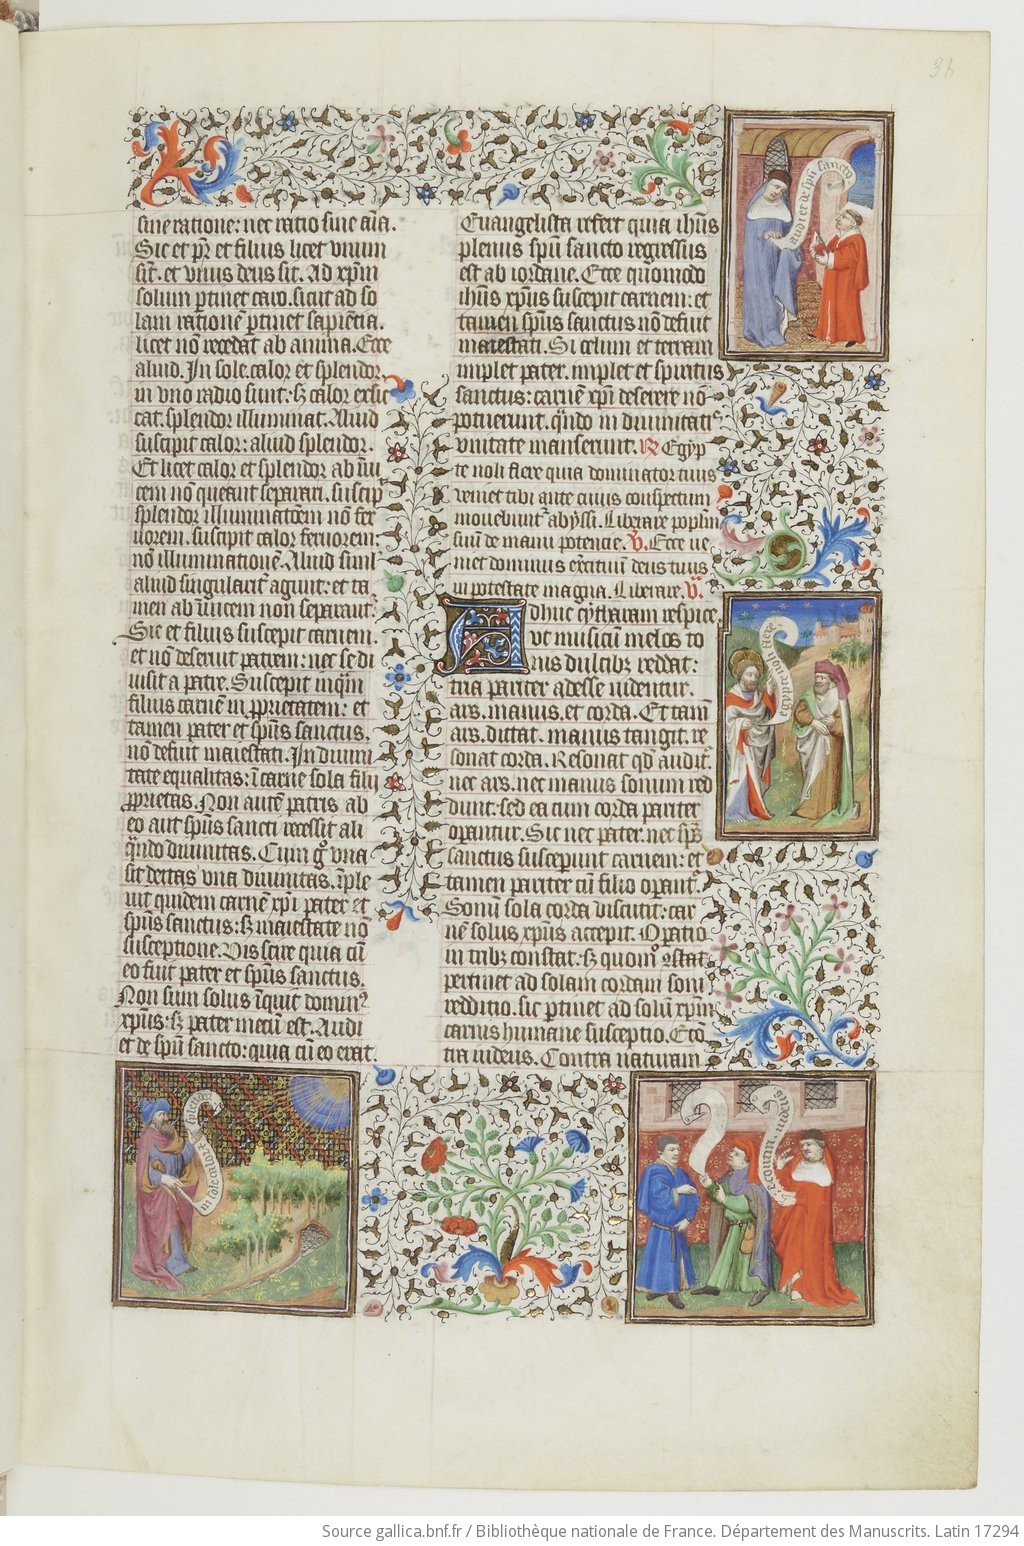 38
sine ratione: nec ratio sine aīa.
Sic et pr̄ et filius licet unum
sīt. et unus deus sit. Ad xp̄m
solum ꝑtinet caro. sicut ad so
lam rationē ꝑtinet sapiētia.
licet nō recedat ab anima. Ecce
aliud. In sole. calor et splendor
in uno radio sunt: sꝫ calor exsic
cat. splendor illuminat. Aliud
suscipit calor: aliud splendor.
Et licet calor et splendor ab īui
cem nō queant separari. suscip̄
splendor illuminatōem nō fer
uorem. suscipit calor feruorem:
nō illuminationē. Aliud simł
aliud singularit̄ agunt: et ta
men ab īuicem non separant᷑.
Sic et filius suscepit carnem.
et nō deseruit patrem: nec se di
uisit a patre. Suscepit inqͣm
filius carnē in ꝓprietatem: et
tamen pater et sp̄us sanctus.
nō defuit maiestati. In diuini
tate equalitas: ī carne sola filij
ꝓprietas. Non autē patris ab
eo aut sp̄us sancti recessit ali
qͣndo diuinitas. Cum gͦ una
sit deitas una diuinitas. īple
uit quidem carnē xp̄i pater et
sp̄us sanctus: sꝫ maiestate nō
susceptione. Vis scire quia cū
eo fuit pater et sp̄us sanctus.
Non sum solus īquit dominꝰ
xp̄us: sꝫ pater mecū est. Audi
et de sp̄u sancto: quia cū eo erat.
Euangelista refert quia ihūs
plenus sp̄u sancto regressus
est ab iordane. Ecce quomodo
ihūs xp̄us suscepit carnem: et
tamen sp̄us sanctus nō defuit
maiestati. Si celum et terram
implet pater. implet et spiritus
sanctus: carnē xp̄i deserere nō
potuerunt. qͣndo in diuinitatꝭ
unitate manserunt. R̷ Egyp
te noli flere quia dominator tuus
ueniet tibi ante cuius conspectum
mouebunt᷑ abyssi. Liberare populū
suū de manu potencie. V̷. Ecce ue
niet dominus exercituū deus tuus
in potestate magna. Liberare. V̷.
Adhuc cytharam respice
ut musicū melos so
nis dulcibꝫ reddat:
tria pariter adesse uidentur.
ars. manus. et corda. Et tam̄
ars. dictat. manus tangit. re
sonat corda. Resonat qd̄ audit᷑.
nec ars. nec manus sonum red
dunt: sed ea cum corda pariter
operantur. Sic nec pater. nec sp̄s
sanctus susceperunt carnem: et
tamen pariter cū filio operant᷑.
Sonū sola corda discutit: car
nē solus xp̄us accepit. Operatio
in tribꝫ constat. sꝫ quomͦ ꝯstat
pertinet ad solam cordam soni
redditio. sic ꝑtinet ad solū xp̄m
carnis humane susceptio. Ecō
tra iudeus. Contra naturam
audi et de sp̄u sancto
Egypte noli flere
in sole calor et splendor
Econtra iudeus
Source gallica.bnf.fr / Bibliothèque nationale de France. Département des Manuscrits. Latin 17294